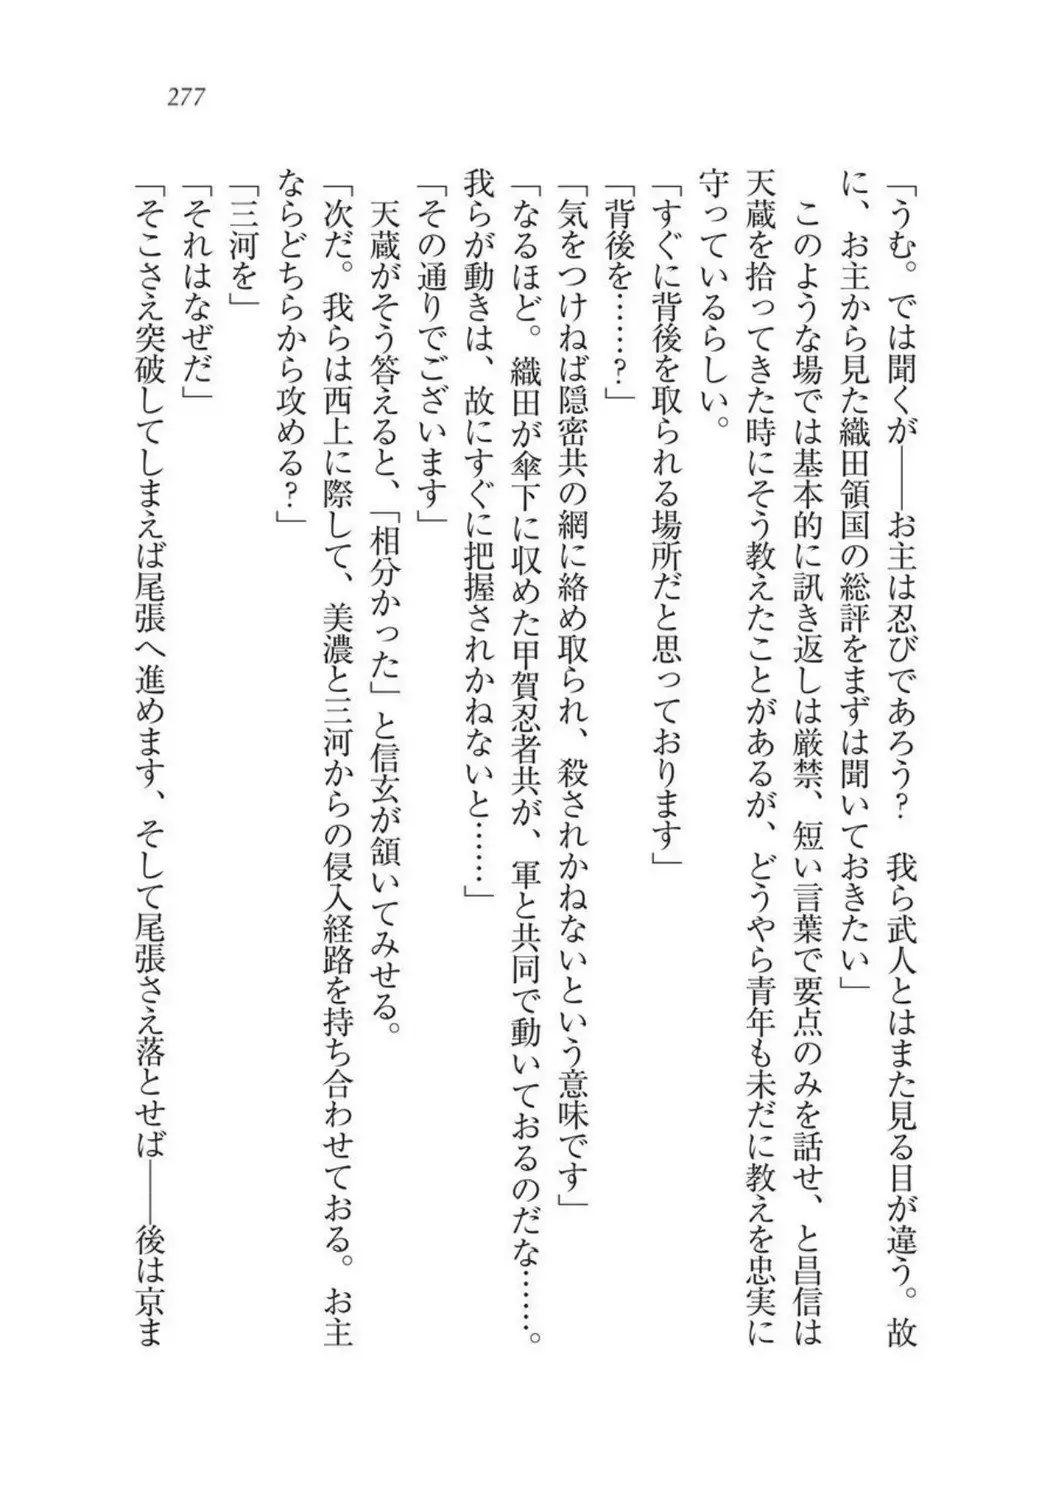 277
「うむ。では聞くが――お主は忍びであろう？　我ら武人とはまた見る目が違う。故
に、お主から見た織田領国の総評をまずは聞いておきたい」
　このような場では基本的に訊き返しは厳禁、短い言葉で要点のみを話せ、と昌信は
天蔵を拾ってきた時にそう教えたことがあるが、どうやら青年も未だに教えを忠実に
守っているらしい。
「すぐに背後を取られる場所だと思っております」
「背後を……？」
「気をつけねば隠密共の網に絡め取られ、殺されかねないという意味です」
「なるほど。織田が傘下に収めた甲賀忍者共が、軍と共同で動いておるのだな……。
我らが動きは、故にすぐに把握されかねないと……」
「その通りでございます」
　天蔵がそう答えると、「相分かった」と信玄が頷いてみせる。
「次だ。我らは西上に際して、美濃と三河からの侵入経路を持ち合わせておる。お主
ならどちらから攻める？」
「三河を」
「それはなぜだ」
「そこさえ突破してしまえば尾張へ進めます、そして尾張さえ落とせば――後は京ま